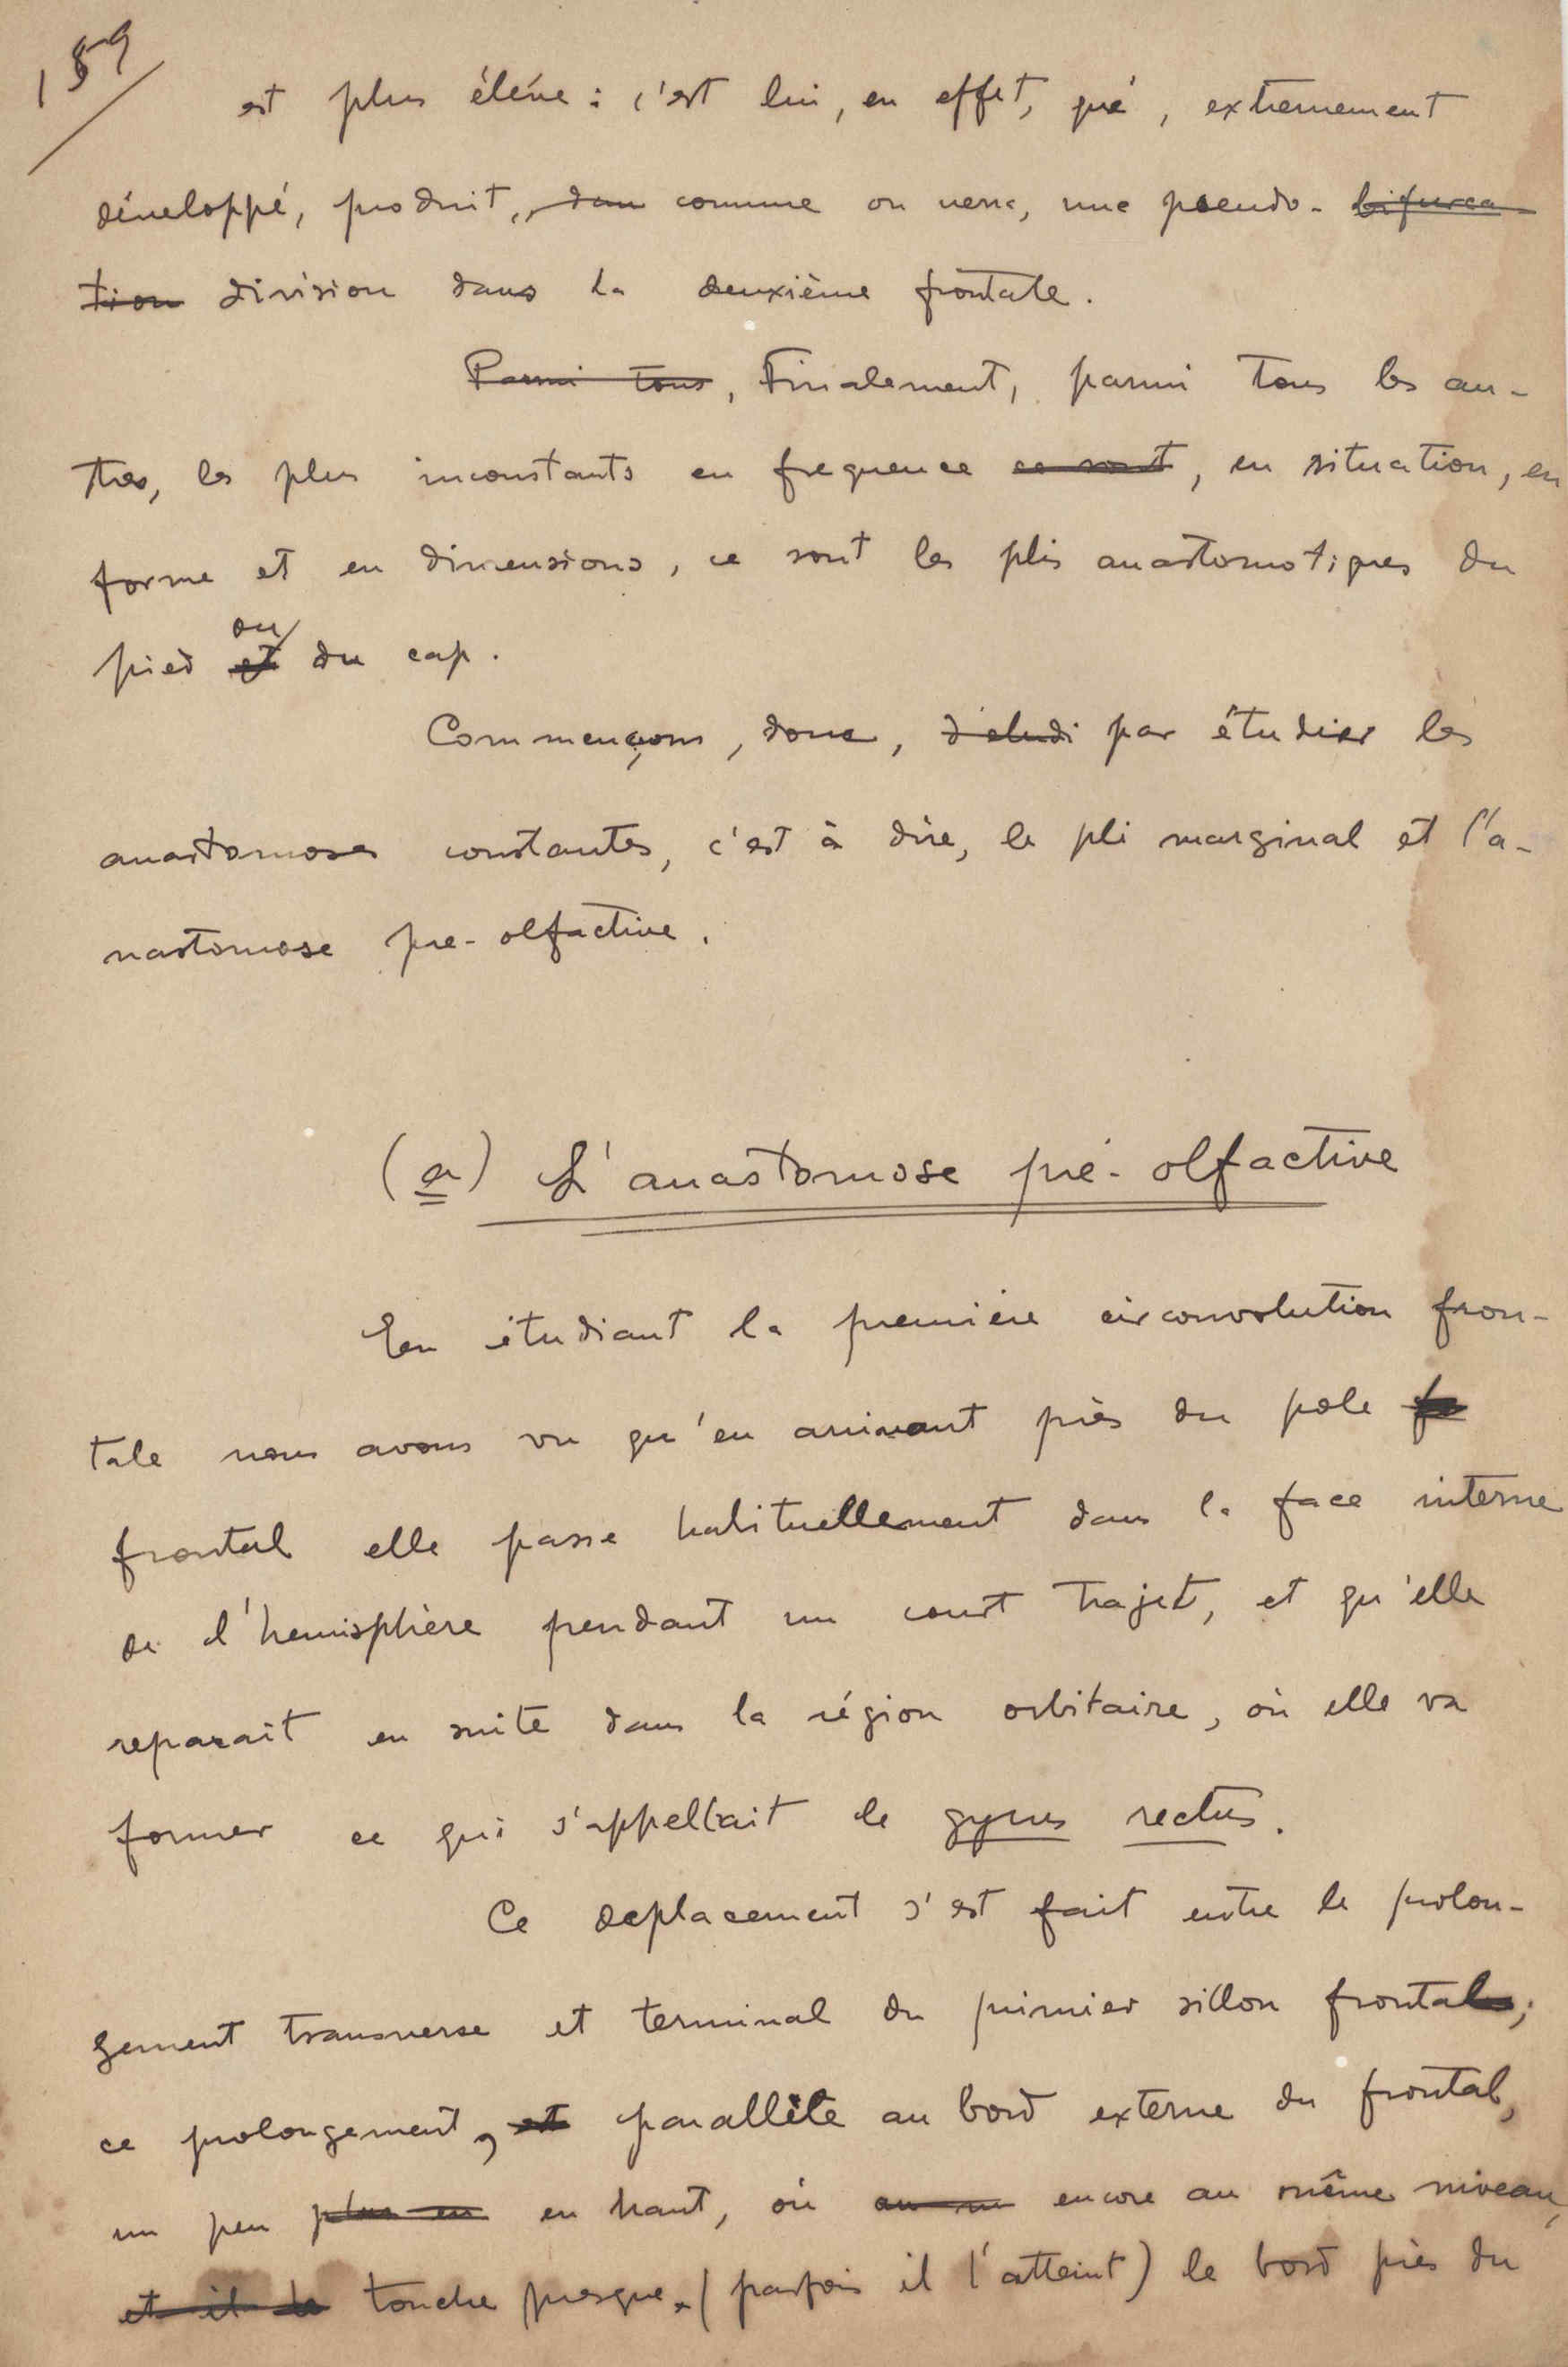 159
est plus éléve : c'est lui, en effet, qué, extremement
développé, produit, dan comme on verra, une pseudo- bifurca
tion division dans la deuxième frontale.
Parmi tous, Finalement, parmi tous les au-
tres, les plus inconstants en frequence ce sont, en situation, en
forme et en dimensions, ce sont les plis anastomotiques du
ou
pied et du cap.
Commençons, donc, d'etudi par étudier les
anastomoses constantes, c'est à dire, le pli marginal et l'a-
nastomose pre-olfactive.
(a) L'anastomose pré-olfactive
En étudiant la première circonvolution fron-
tale nous avons vu qu'en arrivant près du pole fr
frontal elle passe habituellement dans la face interne
de l'hemisphère pendant un court trajet, et qu'elle
reparait en suite dans la région orbitaire, où elle va
former ce qui s'appellait le gyrus rectus.
Ce deplacement s'est fait entre le prolon-
gement transverse et terminal du primier sillon frontal;
ce prolongement, et parallèle au bord externe du frontal,
un peu plus en en haut, où au m encore au même niveau,
et il le touche presque (parfois il l'atteint) le bord près du